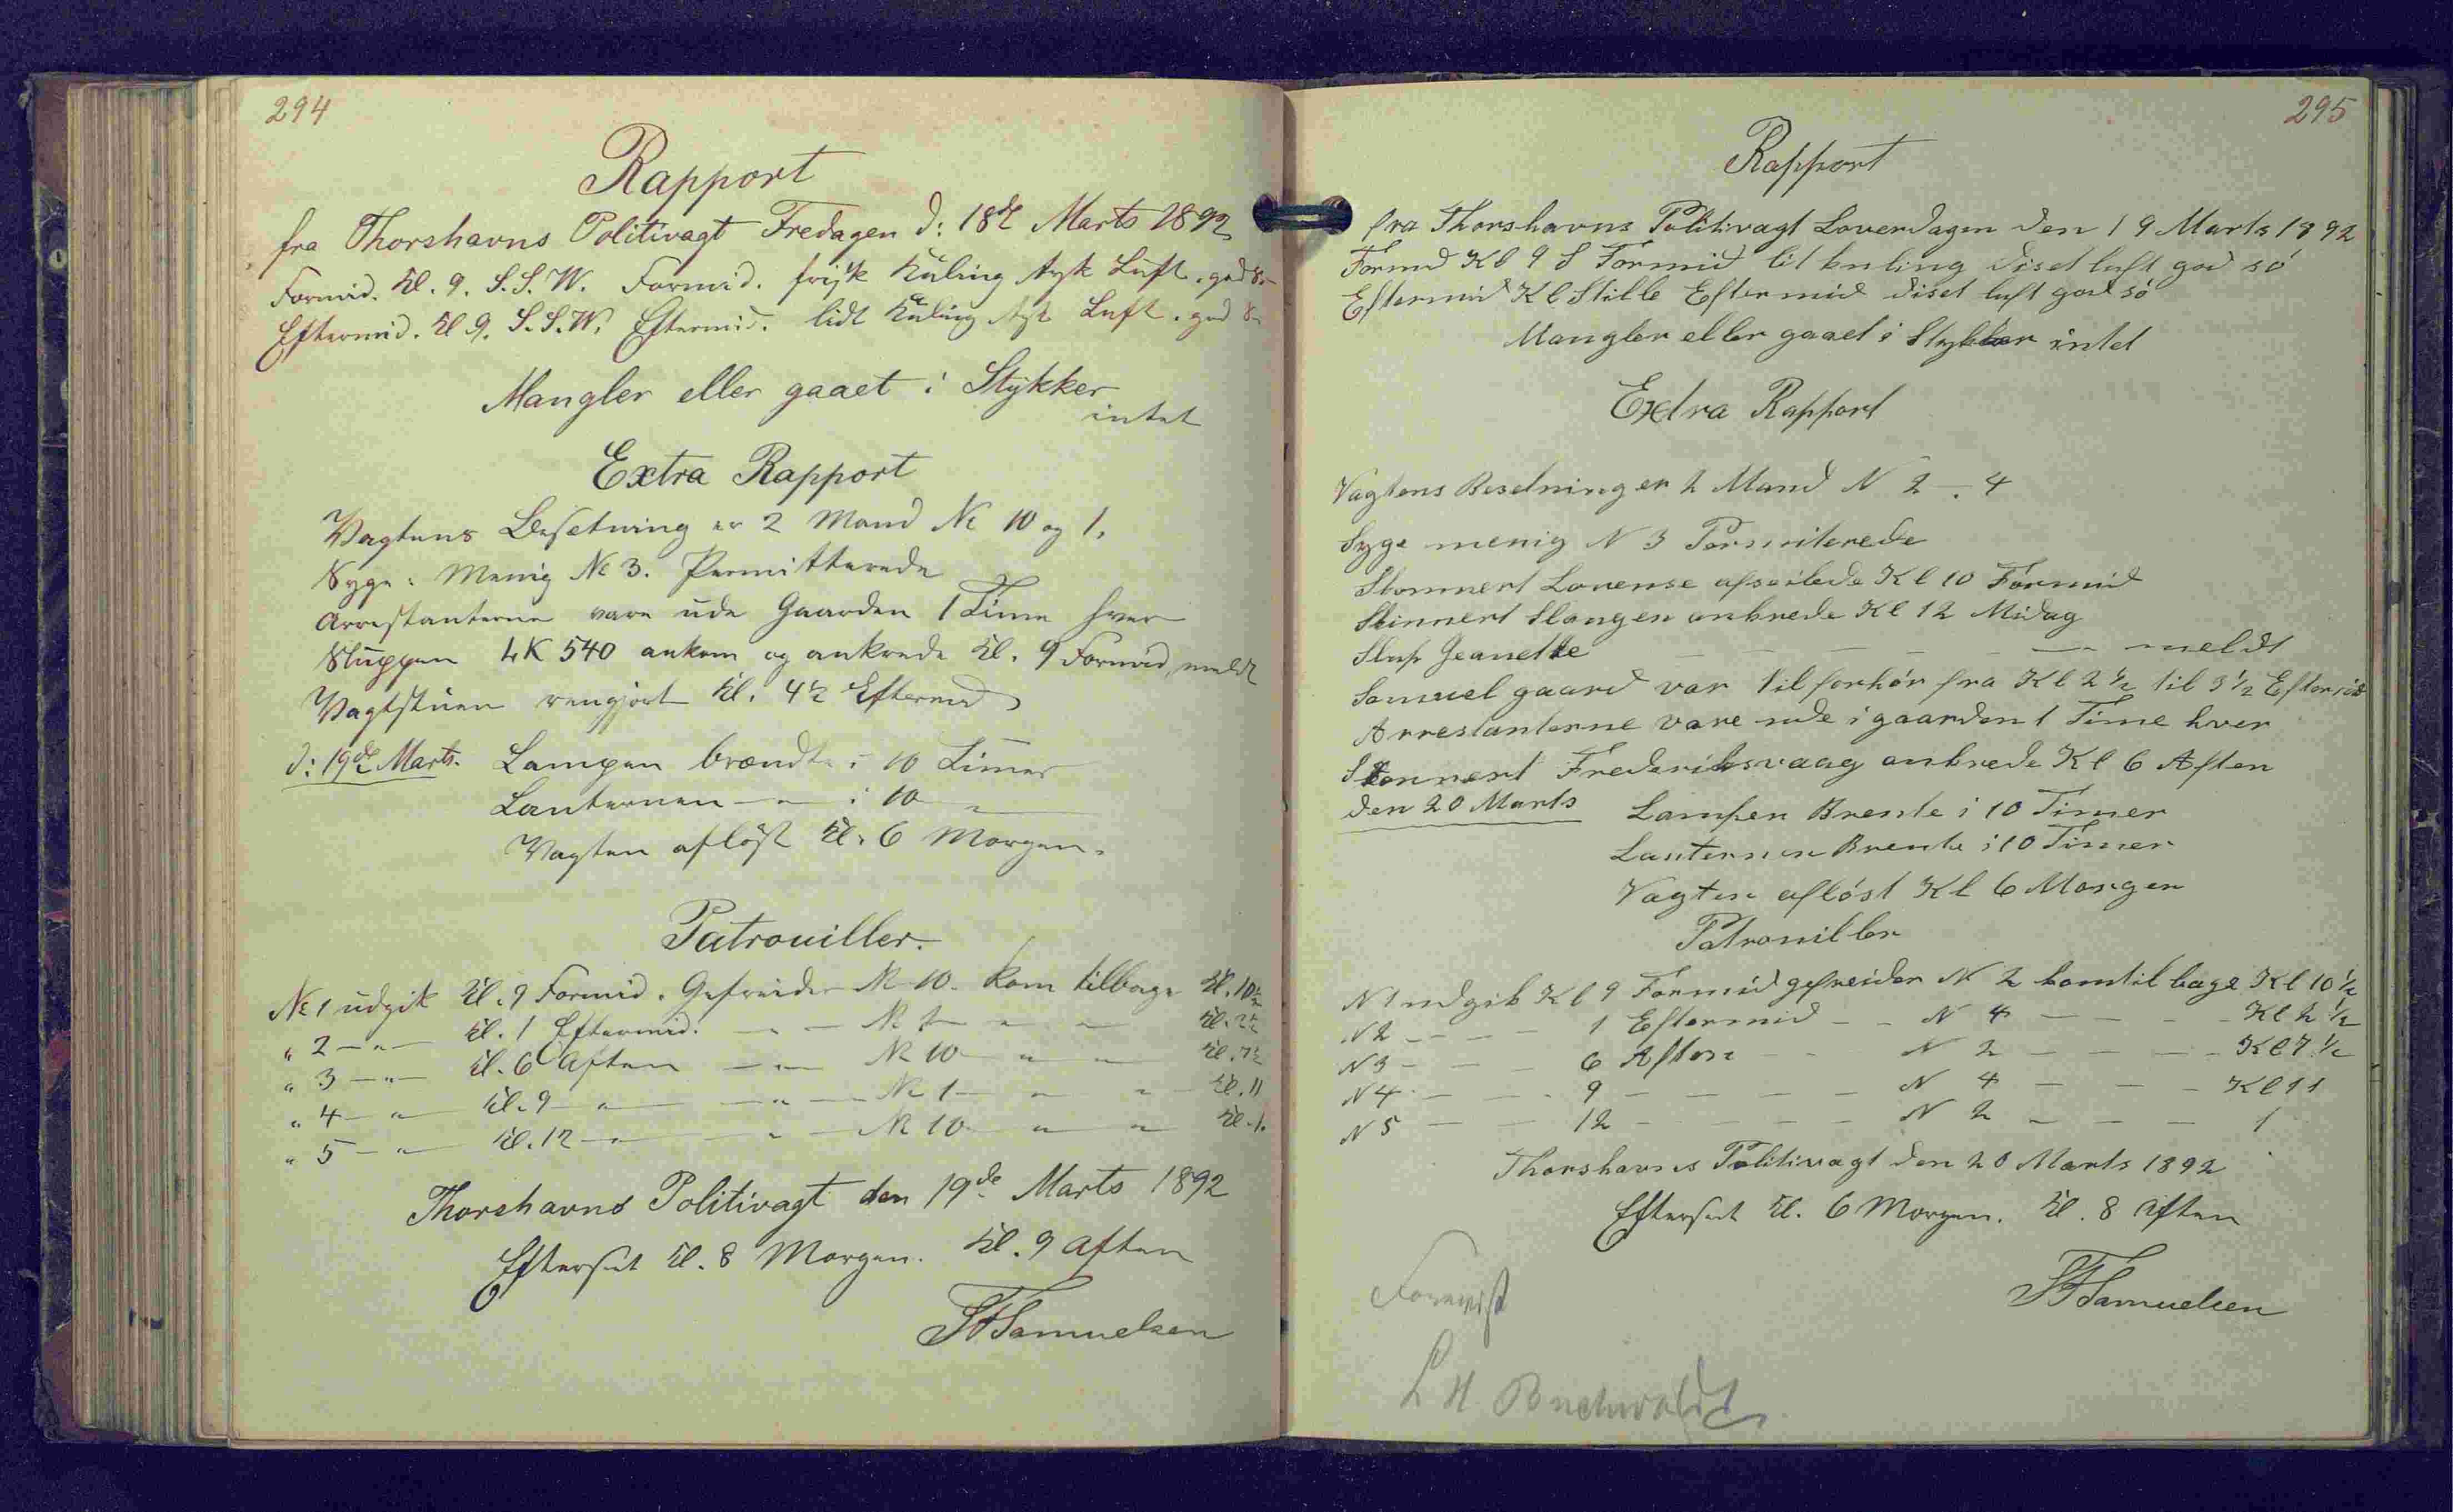 294
Rapport
fra Thorshavns Politivagt Fredagen d: 18de Marts 1892
Formid. Kl. 9. S.S.W. Formid. frisk Kuling tyk Luft. god
Eftermid. Kl 9. S.S.W. Eftermid. lidt Kuling tyk Luft. god
Mangler eller gaaet i Stykker
intet
Extra Rapport
Vagtens Besetning er 2 Mand No 10 og 1.
Syge: Menig No 3. Permitterede
Arrestanterne vare ude Gaarden 1 Time hver
Sluppen LK 540 ankom og ankrede Kl. 9 Formid, meldt
Vagtstuen rengjort Kl. 4½ Eftermd
d: 19de Marts. Lampen brændte i 10 Timer
Lanternen — " — i 10 — " —
Vagten afløst Kl. 6 Morgen.
Patrouiller.
No 1 udgik Kl. 9 Formid. Gefreider No 10. kom tilbage Kl. 10½
" 2 — " — Kl. 1 Eftermid. — " — No 1 — " — " — Kl. 2½
" 3 — " — Kl. 6 Aften — " — No 10 — " — " — Kl. 7½
" 4 — " — Kl. 9 — " — — " — No 1 — " — " — Kl. 11
" 5 — " — Kl. 12 — " — — " — No 10 — " — " — Kl. 1.
Thorshavns Politivagt den 19de Marts 1892
Efterset Kl. 8 Morgen. Kl. 9 Aften
Samuelsen
295
Rapport
fra Thorshavns Politivagt Loverdagen den 19 Marts 1892
Formd Kl 9 S Formid lit kuling diset luft god só
Eftermid Kl Stille Eftermid diset luft god só
Mangler eller gaaet i Stykker intet
Extra Rapport
Vagtens Besetning er 2 Mand N 2 . 4
Syge menig N 3 Permiterede
Skonnert Lovense afseilede Kl 10 Formid
Skinnert Slangen ankrede Kl 12 Midag
Slup Jeanette — — — — — — meldt
Samuel gaard var til forhör fra Kl 2½ til 3½
Arrestanterne vare ude i gaarden 1 Time hver
Skonnert Frederiksvaag ankrede Kl 6 Aften
den 20 Marts Lampen Brente i 10 Timer
Lanternen Brente i 10 Timer
Vagten aflóst Kl 6 Morgen
Patrouiller
N 1 udgik Kl 9 Formid gefreider N 2 kom tilbage Kl 10½
N 2 — — — 1 Eftermid — — N 4 — — — — Kl 2½
N 3 — — — 6 Aften — — N 2 — — — — Kl 7½
N 4 — — — 9 — — — — N 4 — — — Kl 11
N 5 — — 12 — — — — N 2 — — — 1
Thorshavns Politivagt den 20 Marts 1892
Efterset Kl. 6 Morgen. Kl. 8 Aften
Samuelsen
Forevist
L H. Buchwaldt